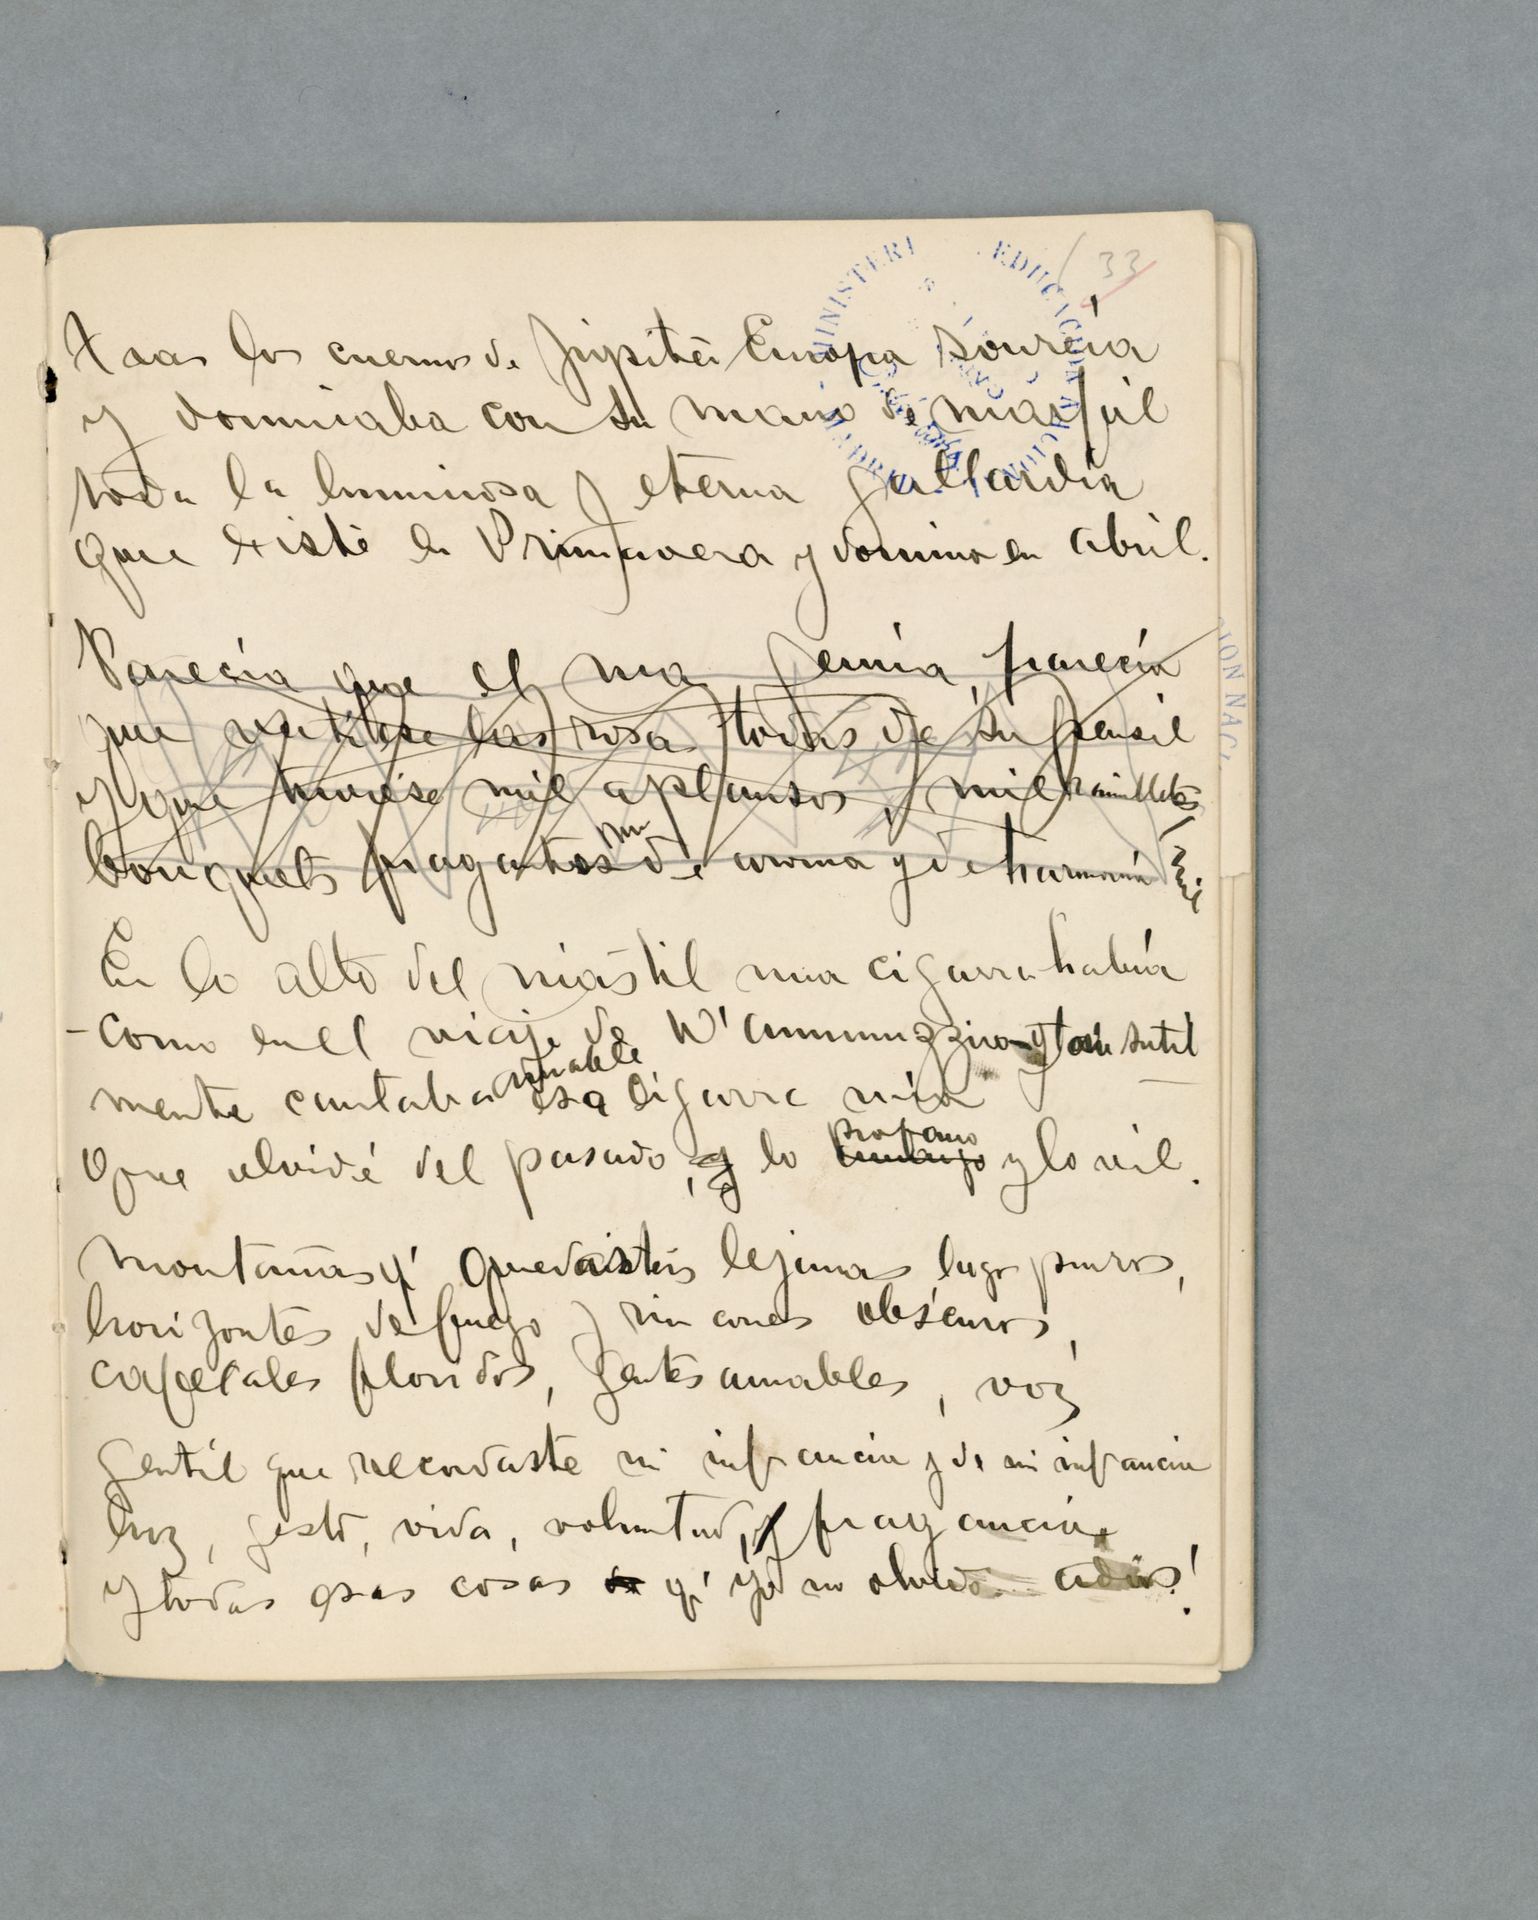 33
MINISTERI EDUCACION NACION
Tras los cuernos de Júpiter Europa sonreía
y dominaba con su mano de marfil
toda la luminosa y eterna gallardía
que existe en Primavera y domina en abril.
Parecía que el mar gemía, parecía
que vertiese las rosas todas de su pensil
y que tuviese mil aplausos, y mil ramilletes
bouquets fragantes de aroma y de harmonía
En lo alto del mástil una cigarra había
-como en el viaje de D'Annunnzzio- y tan sutil
mente cantaba amable esa cigarra mía
que olvidé del pasado, lo profano y lo vil.
Montañas q' quedasteis lejanas, lagos puros,
horizontes de fuego y rincones obscuros,
cafetales floridos, gentes amables, voz
gentil que recordaste mi infancia y de mi infancia
luz, gesto, vida, voluntud, y fragancia,
y todas esas cosas q' yo no olvido... adiós!
ION NACI